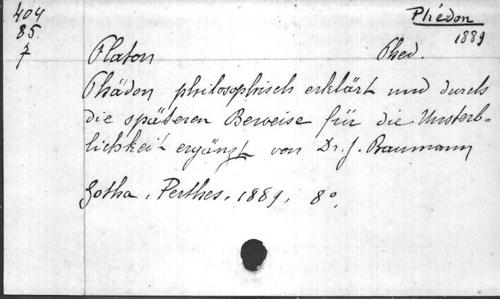 404 Phédon
85 1889
7 Platon Phed.
Phädon philosophisch erklärt und durch
die späteren Beweise für die Unsterb-
lichkeit ergänzt von Dr. J. Baumann
Gotha, Perthes, 1889, 8°.